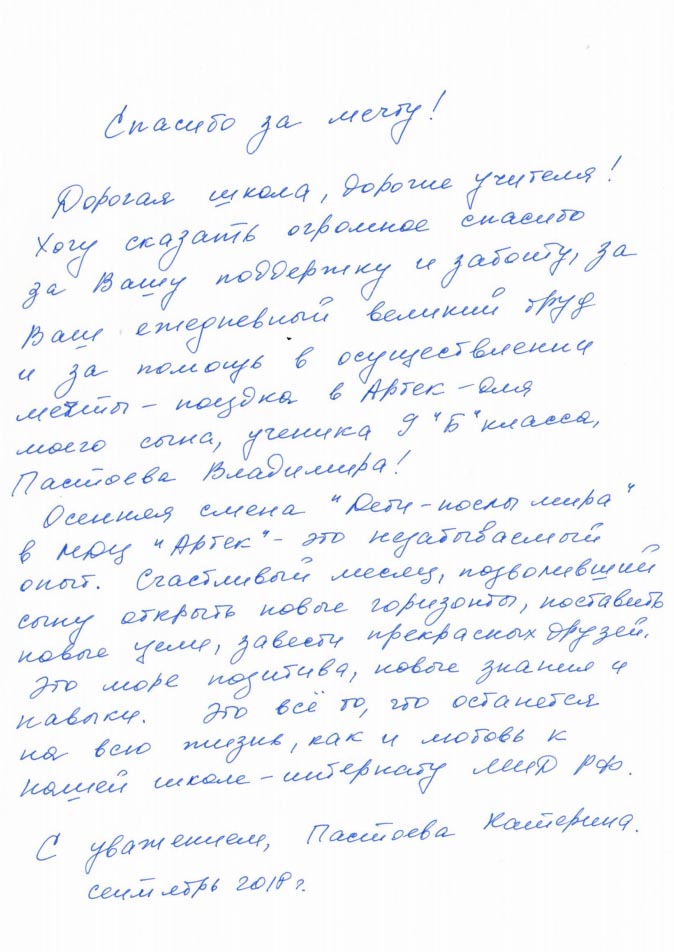 Спасибо за мечту!
Дорогая школа, дорогие учителя!
Хочу сказать огромное спасибо
за Вашу поддержку и заботу, за
Ваш ежедневный великий труд
и за помощь в осуществлении
мечты - поездка в Артек - для
моего сына, ученика 9 "Б" класса,
Пастоева Владимира!
Осенняя смена "Дети-послы мира"
в МДЦ "Артек" - это незабываемый
опыт. Счастливый месяц, позволивший
сыну открыть новые горизонты, поставить
новые цели, завести прекрасных друзей.
Это море позитива, новые знания и
навыки. Это всё то, что останется
на всю жизнь, как и любовь к
нашей школе-интернату МИД РФ.
С уважением, Пастоева Катерина.
сентябрь 2018 г.